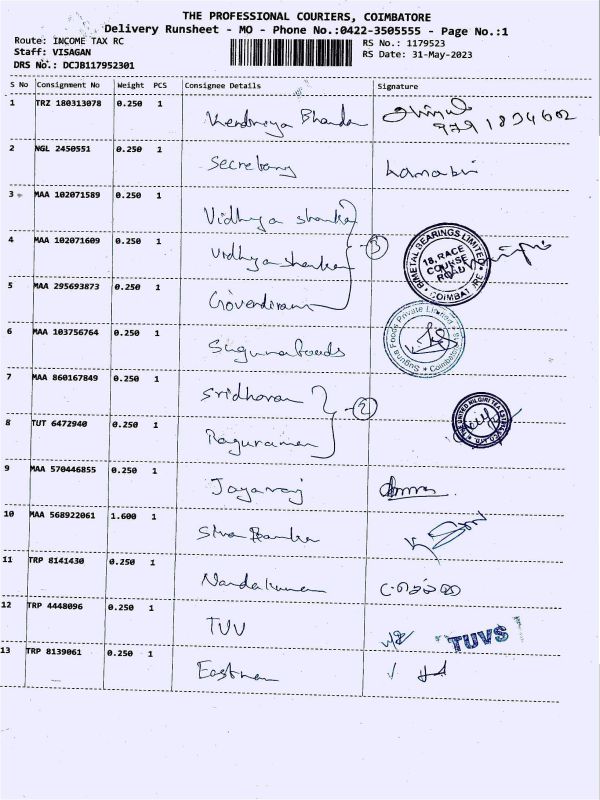 THE PROFESSIONAL COURIERS, COIMBATORE
Delivery Runsheet - MO - Phone No.:0422-3505555 - Page No.:1
Route: INCOME TAX RC RS No.: 1179523
Staff: VISAGAN RS Date: 31-May-2023
DRS No.: DCJB117952301
S No Consignment No Weight PCS Consignee Details Signature
1 TRZ 180313078 0.250 1
9791834602
2 NGL 2450551 0.250 1 Secretary
3 MAA 102071589 0.250 1 Vidhya shanka
4 MAA 102071609 0.250 1 Vidhya shanka 3 BIMETAL BEARINGS LIMITED 18, RACE COURSE ROAD COIMBATORE
5 MAA 295693873 0.250 1
6 MAA 103756764 0.250 1 Sugunafoods Suguna Foods Private Limited Coimbatore
7 MAA 860167849 0.250 1 Sridharan 2
8 TUT 6472940 0.250 1 Raguraman THE UNITED NILGIRI TEA
9 MAA 570446855 0.250 1 Jayaraj
10 MAA 568922061 1.600 1
11 TRP 8141430 0.250 1 Nandakumar
12 TRP 4448096 0.250 1 TUV TUVS
13 TRP 8139061 0.250 1 Eastman